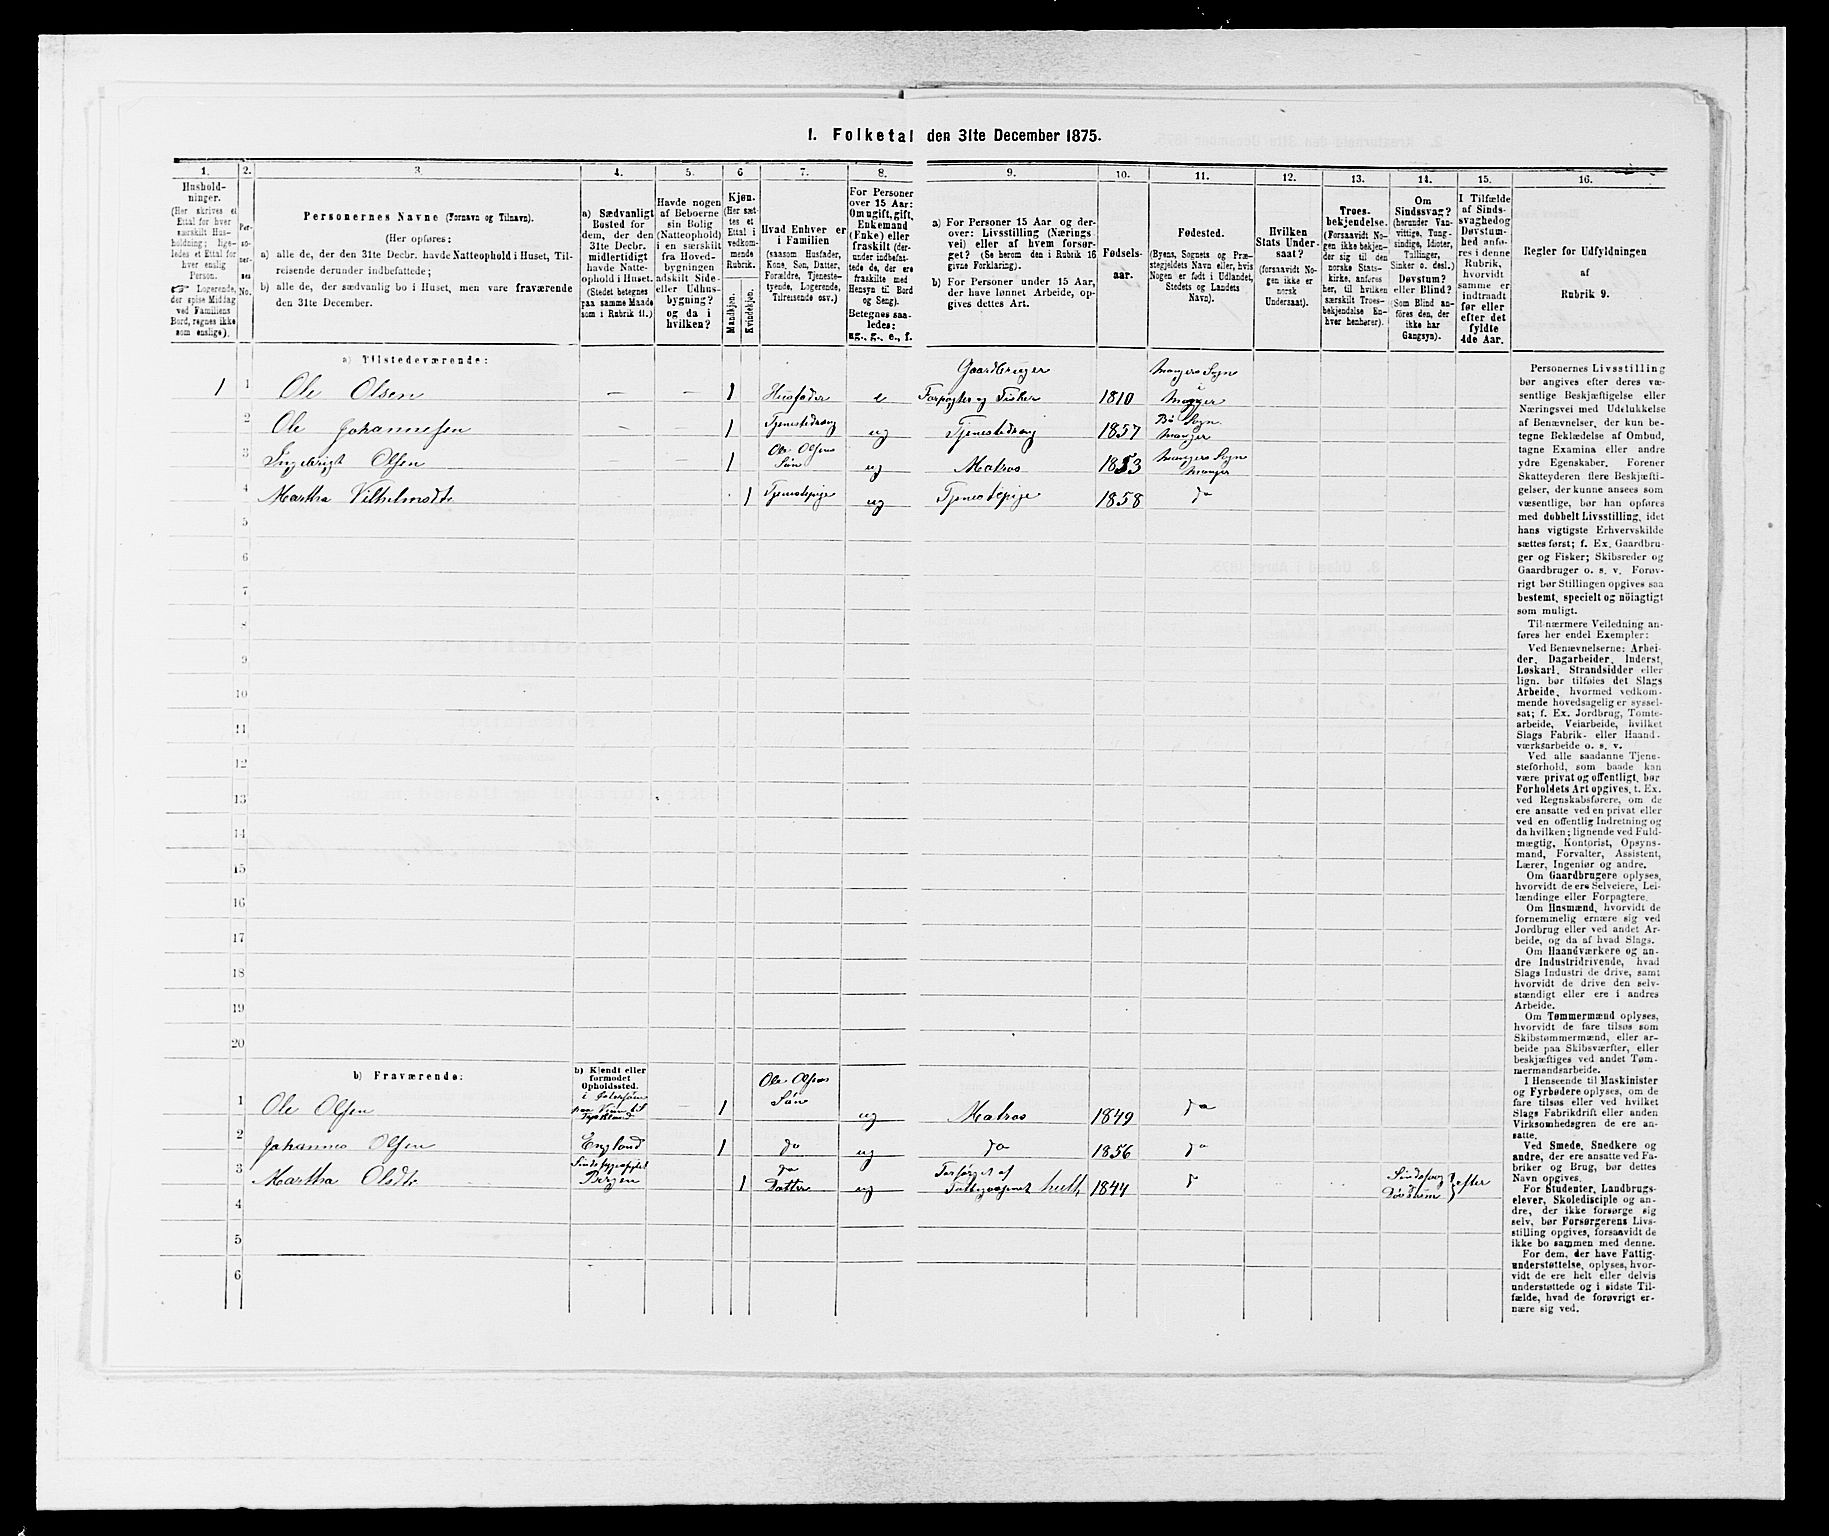 1. Folketal den 31te December 1875.
1. 2. 3. 4. 5. 6 7. 8. 9. 10. 11. 12. 13. 14. 15. 16.
Hushold-
ninger.
(Her skrives et
Ettal for hver
særskilt Hus-
holdning; lige-
ledes et Ettal for
hver enslig
Person.
☞ Logerende,
der spise Middag
ved Familiens
Bord, regnes ikke
som enslige).
Per-
so-
ner-
nes
No.
Personernes Navne (Fornavn og Tilnavn).
(Her opføres:
a) alle de, der den 31te Decbr. havde Natteophold i Huset, Til-
reisende derunder indbefattede;
b) alle de, der sædvanlig bo i Huset, men vare fraværende
den 31te December.
a) Sædvanligt
Bosted for
dem, der den
31te Decbr.
midlertidigt
havde Natte-
ophold i Huset.
(Stedet betegnes
paa samme Maade
som i Rubrik 11.)
Havde nogen
af Beboerne
sin Bolig
(Natteophold)
i en særskilt
fra Hoved-
bygningen
adskilt Side-
eller Udhus-
bygning?
og da i
hvilken?
Kjøn.
(Her sæt-
tes et
Ettal i
vedkom-
mende
Rubrik.
Mandkjøn.
Kvindekjøn.
Hvad Enhver er
i Familien
(saasom Husfader,
Kone, Søn, Datter,
Forældre, Tjeneste-
tyende, Logerende,
Tilreisende osv.)
For Personer
over 15 Aar:
Om ugift, gift,
Enkemand
(Enke) eller
fraskilt (der-
under indbefat-
tede de, der ere
fraskilte med
Hensyn til Bord
og Seng).
Betegnes saa-
ledes:
ug., g., e., f.
a) For Personer 15 Aar og der-
over: Livsstilling (Nærings-
vei) eller af hvem forsør-
get? (Se herom den i Rubrik 16
givne Forklaring).
b) For Personer under 15 Aar,
der have lønnet Arbeide, op-
gives dettes Art.
Fødsels-
aar.
Fødested.
(Byens, Sognets og Præ-
stegjeldets Navn eller, hvis
Nogen er født i Udlandet,
Stedets og Landets
Navn).
Hvilken
Stats Under-
saat?
(forsaavidt No-
gen ikke er
norsk
Undersaat).
Troes-
bekjendelse.
(Forsaavidt No-
gen ikke bekjen-
der sig til den
norske Stats-
kirke, anføres
her, til hvilken
særskilt Troes-
bekjendelse En-
hver henhører).
Om
Sindssvag?
(herunder Van-
vittige, Tung-
sindige, Idioter,
Tullinger,
Sinker o. desl.)
Døvstum?
eller Blind?
(Som Blind an-
føres den, der
ikke har
Gangsyn).
I Tilfælde
af Sinds-
svaghed og
Døvstum-
hed anfø-
res i denne
Rubrik,
hvorvidt
samme er
indtraadt
før eller
efter det
fyldte
4de Aar.
Regler for Udfyldningen
af
Rubrik 9.
a) Tilstedeværende:
1 1 Ole Olsen — — 1 Husfader e Gaardbruger Forpagter og Fisker 1810 Mangers Sogn i Manger
2 Ole Johannesen - - 1 Tjenestedreng ug Tjenestedreng 1857 Bø Sogn Manger
3 Ingebrigt Olsen - - 1 Ole Olsens Søn ug Matros 1853 Mangers Sogn Manger
4 Martha Vilhelmsdtr 1 Tjenestepige ug Tjenestepige 1858 do
5
6
7
8
9
10
11
12
13
14
15
16
17
18
19
20
b) Fraværende:
b) Kjendt eller
formodet
Opholdssted.
1 Ole Olsen i Østersøen paa Veien til Tyskland 1 Ole Olsens Søn ug Matros 1849 do
2 Johannes Olsen England 1 do ug do 1856 do
3 Martha Olsdtr Sindssygeasylet Bergen 1 do Datter ug Forsørget af Fattigvæsenet helt, 1844 do Sindssvag Døvstum } efter
4
5
6
Personernes Livsstilling
bør angives efter deres væ-
sentlige Beskjæftigelse eller
Næringsvei med Udelukkelse
af Benævnelser, der kun be-
tegne Beklædelse af Ombud,
tagne Examina eller andre
ydre Egenskaber. Forener
Skatteyderen flere Beskjæfti-
gelser, der kunne ansees som
væsentlige, bør han opføres
med dobbelt Livsstilling, idet
hans vigtigste Erhvervskilde
sættes først; f. Ex. Gaardbru-
ger og Fisker; Skibsreder og
Gaardbruger o. s. v. Forøv-
rigt bør Stillingen opgives saa
bestemt, specielt og nöiagtigt
som muligt.
Til nærmere Veiledning an-
føres her endel Exempler:
Ved Benævnelserne: Arbei-
der, Dagarbeider, Inderst,
Løskarl, Strandsidder eller
lign. bør tilføies det Slags
Arbeide, hvormed vedkom-
mende hovedsagelig er syssel-
sat; f. Ex. Jordbrug, Tömte-
arbeide, Veiarbeide, hvilket
Slags Fabrik- eller Haand-
værksarbeide o. s. v.
Ved alle saadanne Tjene-
steforhold, som baade kan
være privat og offentligt, bør
Forholdets Art opgives, t. Ex.
ved Regnskabsførere, om de
ere ansatte ved en privat eller
ved en offentlig Indretning og
da hvilken; lignende ved Fuld-
mægtig, Kontorist, Opsyns-
mand, Forvalter, Assistent,
Lærer, Ingeniør og andre.
Om Gaardbrugere oplyses,
hvorvidt de ere Selveiere, Lei-
lændinge eller Forpagtere.
Om Husmænd, hvorvidt de
fornemmelig ernære sig ved
Jordbrug eller ved andet Ar-
beide, og da af hvad Slags.
Om Haandværkere og an-
dre Industridrivende, hvad
Slags Industri de drive, samt
hvorvidt de drive den selv-
stændigt eller ere i andres
Arbeide.
Om Tømmermænd oplyses,
hvorvidt de fare tilsøs som
Skibstømmermænd, eller ar-
beide paa Skibsværfter, eller
beskjæftiges ved andet Tøm-
mermandsarbeide.
I Henseende til Maskinister
og Fyrbødere oplyses, om de
fare tilsøs eller ved hvilket
Slags Fabrikdrift eller anden
Virksomhedsgren de ere an-
satte.
Ved Smede, Snedkere og
andre, der ere ansatte ved Fa-
briker og Brug, bør dettes
Navn opgives.
For Studenter, Landbrugs-
elever, Skoledisciple og an-
dre, der ikke forsørge sig
selv, bør Forsørgerens Livs-
stilling opgives, forsaavidt de
ikke bo sammen med denne.
For dem, der have Fattig-
understøttelse, oplyses, hvor-
vidt de ere helt eller delvis
understøttede og i sidste Til-
fælde, hvad de forøvrigt er-
nære sig ved.